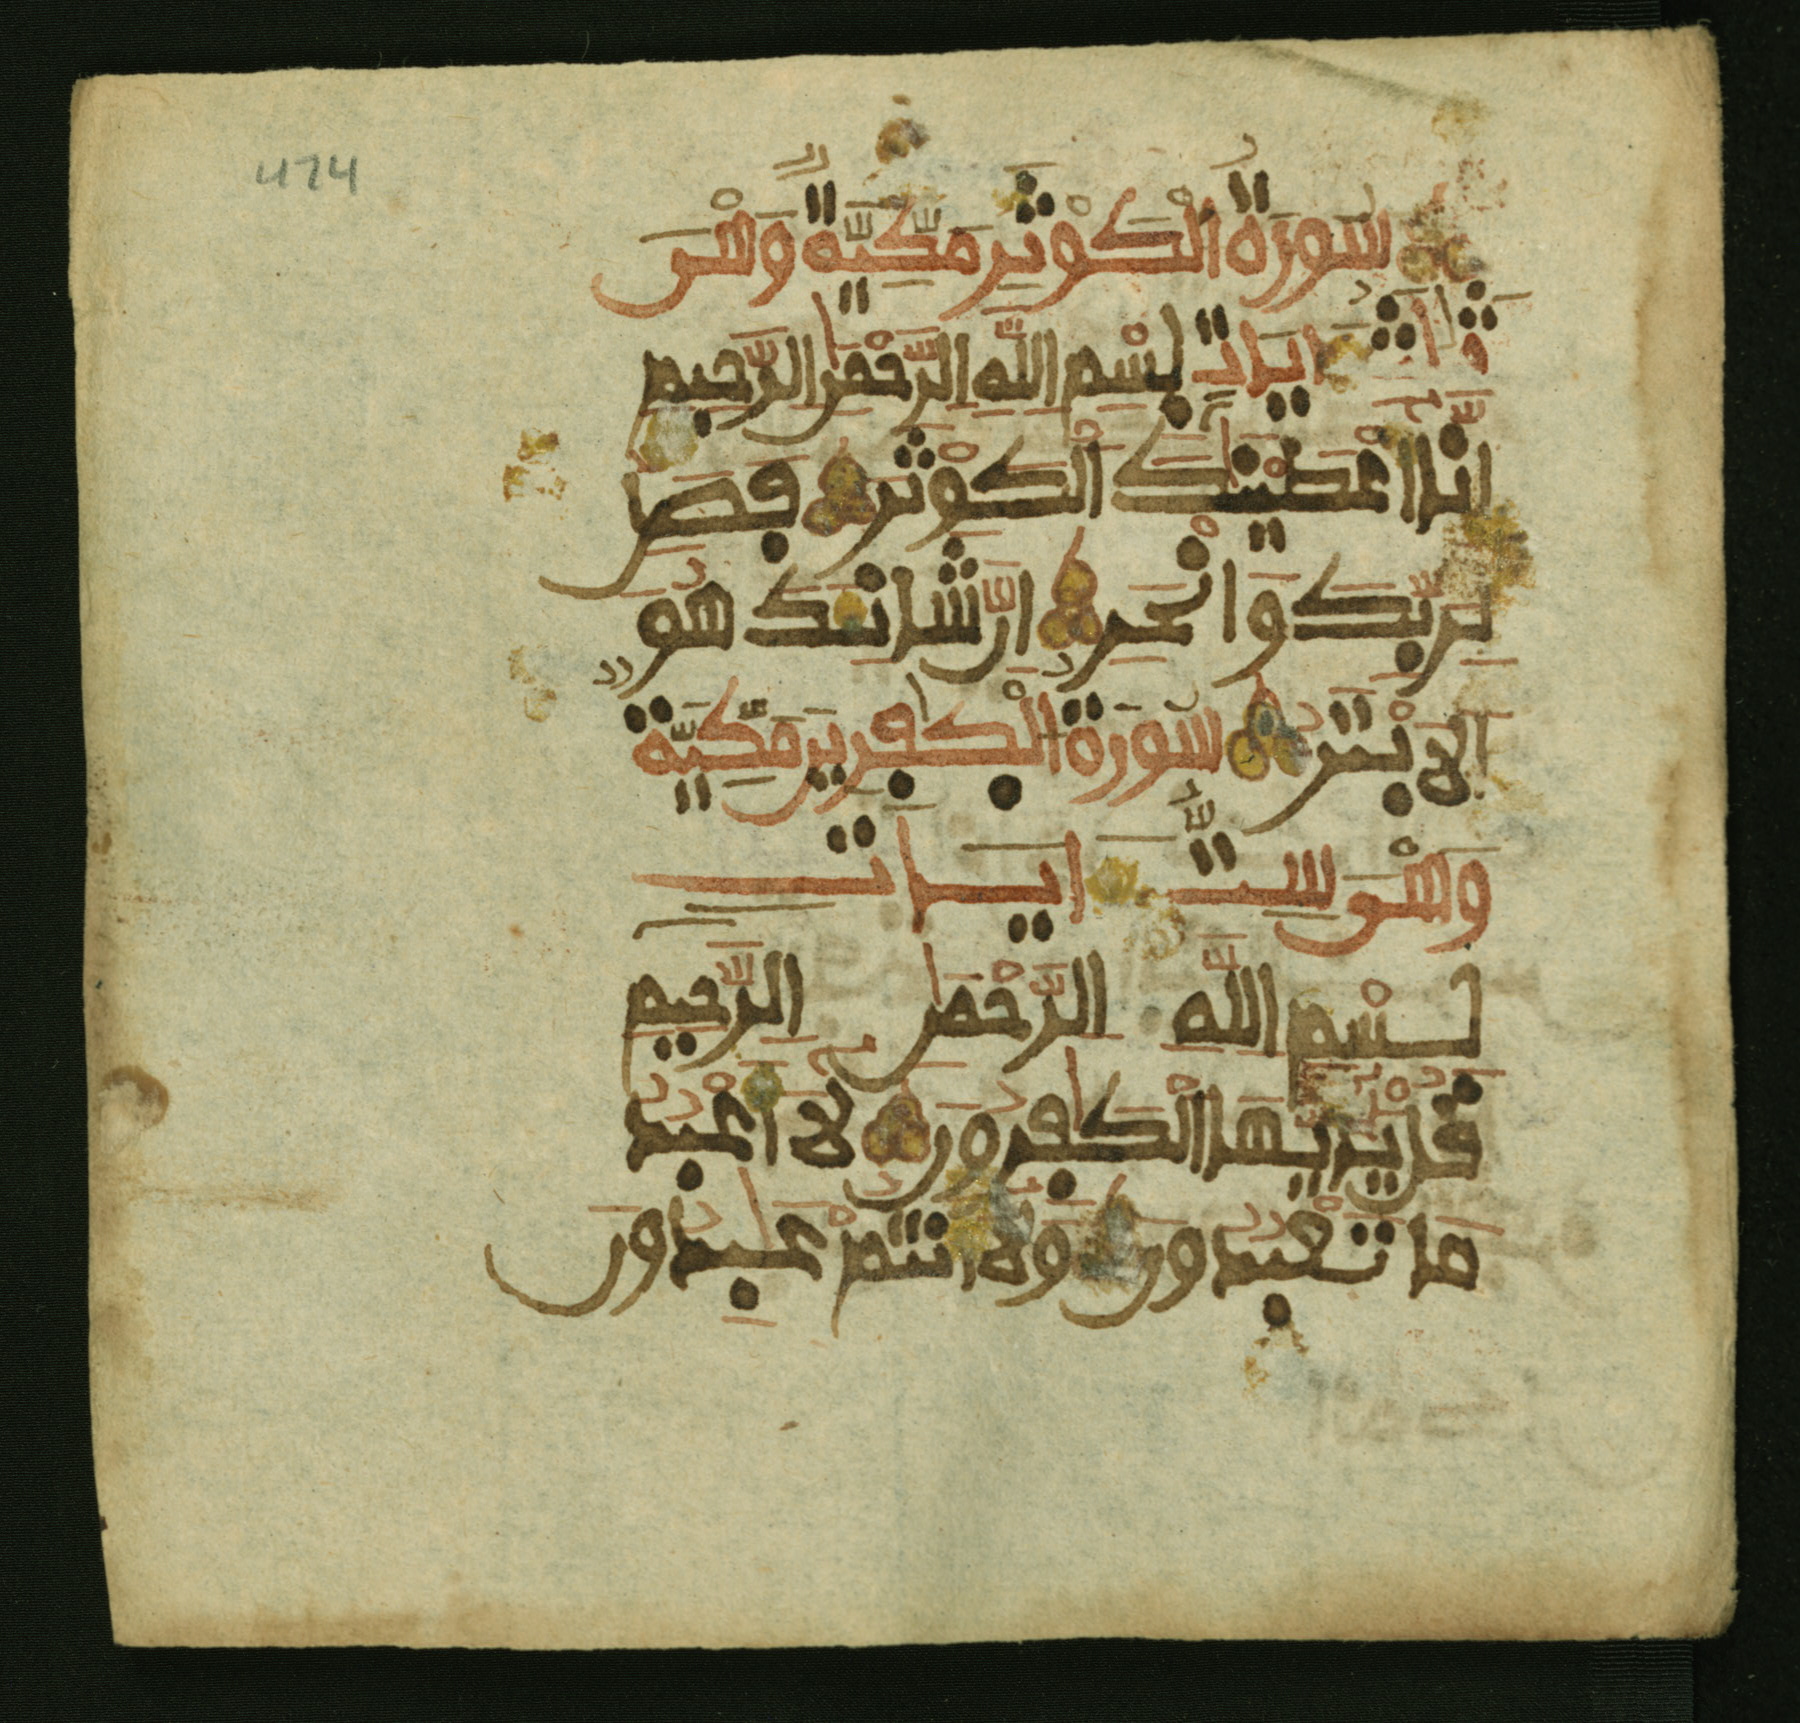 474
سُورَةُ الْكَوْثَرِ مَكِّيَّةٌ وَهْىَ
ثلاث ايَاتٍ بِسْمِ اللَّهِ الرَّحْمَٰنِ الرَّحِيمِ
إِنَّا أَعْطَيْنَٰكَ الْكَوْثَرَ فَصَلِّ
لِرَبِّكَ وَانْحَرْ إِنَّ شَانِئَكَ هُوَ
الَابْتَرُ سُورَةُ الْكَٰفِرِينَ مَكِّيَّةٌ
وَهْىَ سِتُّ ايَاتٍ
بِسْمِ اللَّهِ الرَّحْمَٰنِ الرَّحِيمِ
قُلْ يَٰأَيُّهَا الْكَٰفِرُونَ لَا أَعْبُدُ
مَا تَعْبُدُونَ وَلَا أَنتُمْ عَٰبِدُونَ